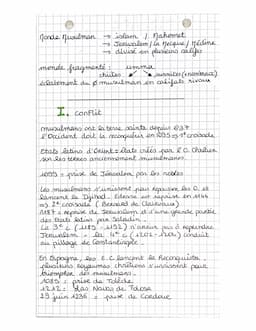 Monde Musulman → islam / Mahomet
→ Jérusalem / la Mecque / Médine
→ divisé en plusieurs califes
monde fragmenté : umma
chiites sunnites (+ nombreux)
également du monde musulman en califats rivaux
I. conflit
musulmans ont la terre sainte depuis 637
l'Occident doit la reconquérir en 1095 → 1e croisade
Etats latins d'Orient = états créés par l'O. Chrétien
sur les terres anciennement musulmanes.
1099 = prise de Jérusalem par les nobles
Les musulmans s'unissent pour repousser les O. et
lancent le Djihad. Edesse est reprise en 1144
⇒ 2e croisade (Bernard de Clairvaux)
1187 = reprise de Jérusalem et d'une grande partie
des Etats latins par Saladin.
La 3e c (1189 - 1192) n'arrive pas à reprendre
Jérusalem → la 4e c (1202 - 1204) conduit
au pillage de Constantinople.
En Espagne, les E.C lancent la Reconquista.
plusieurs royaumes chrétiens s'unissent pour
triompher des musulmans.
1085 = prise de Tolède
1212 = Las Navas de Tolosa
29 juin 1236 = prise de Cordoue